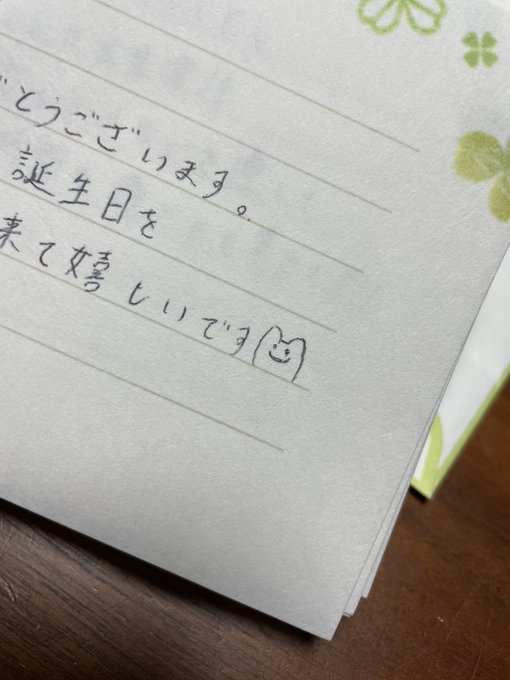 がとうございます。
誕生日を
来て嬉しいです